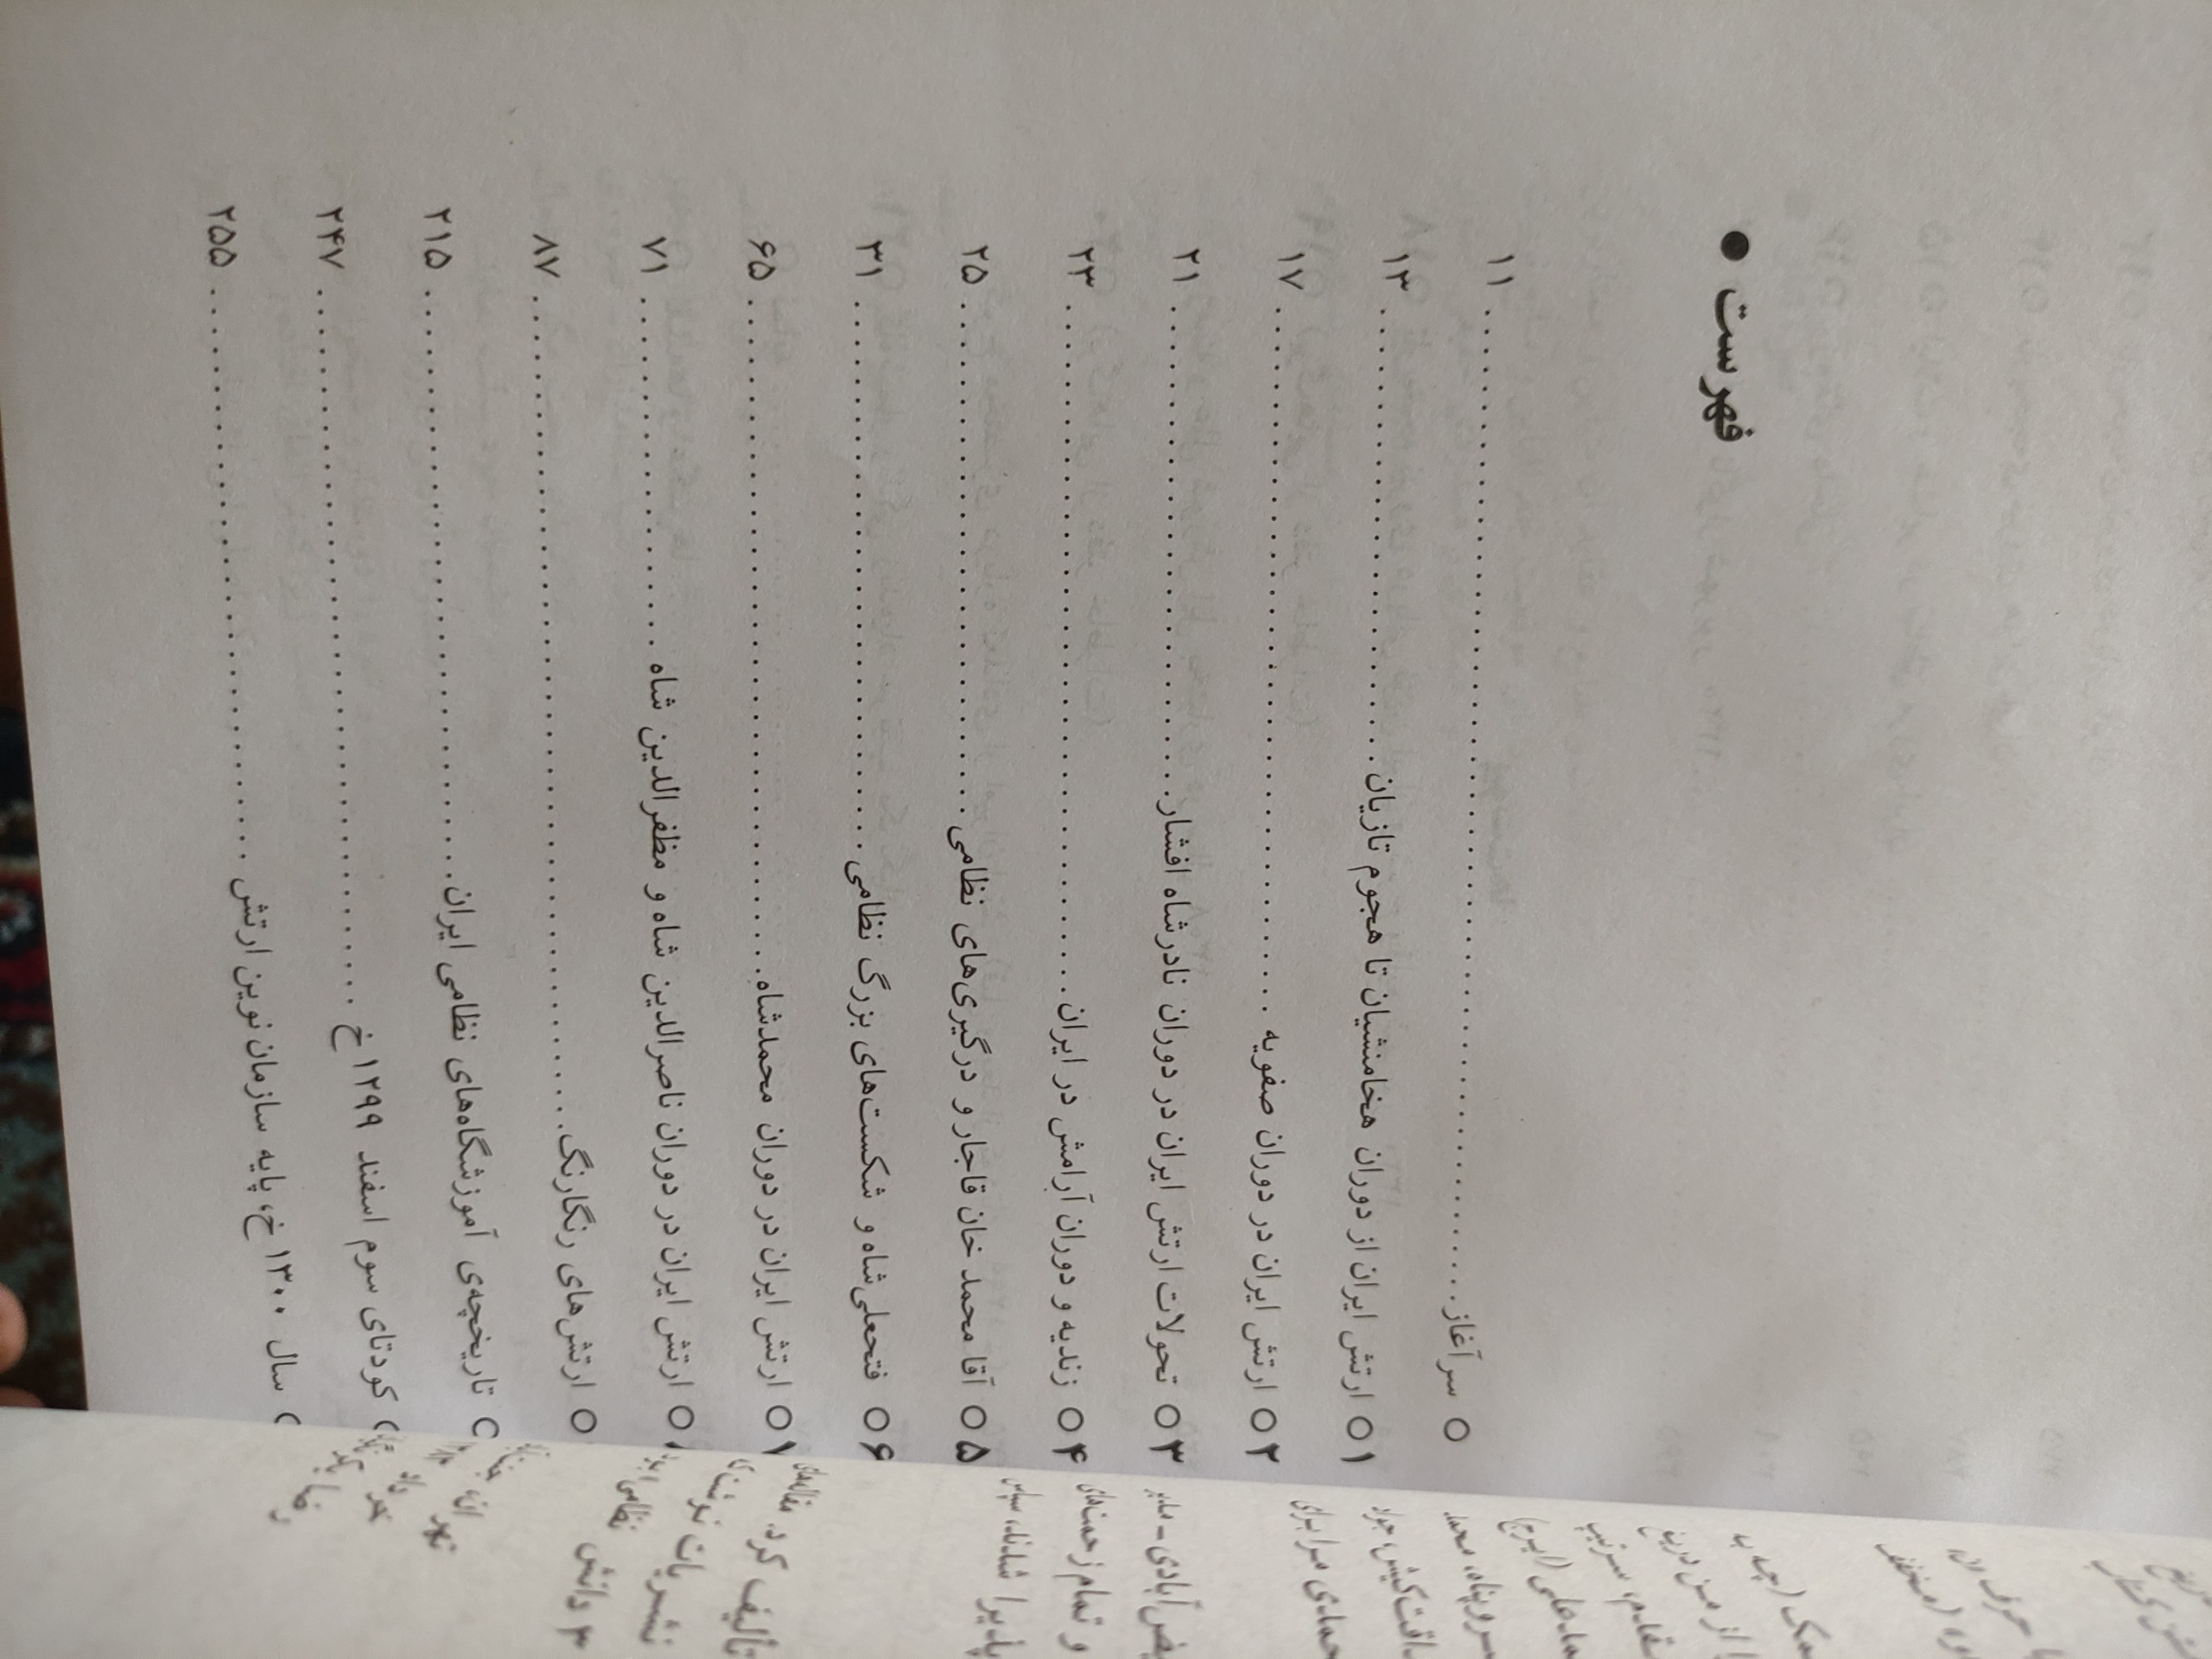 ● فهرست
○ سرآغاز ........ ۱۱
۱ ○ ارتش ایران از دوران هخامنشیان تا هجوم تازیان ........ ۱۳
۲ ○ ارتش ایران در دوران صفویه ........ ۱۷
۳ ○ تحولات ارتش ایران در دوران نادرشاه افشار ........ ۲۱
۴ ○ زندیه و دوران آرامش در ایران ........ ۲۳
۵ ○ آقا محمد خان قاجار و درگیری‌های نظامی ........ ۲۵
۶ ○ فتحعلی‌شاه و شکست‌های بزرگ نظامی ........ ۳۱
○ ارتش ایران در دوران محمدشاه ........ ۶۵
○ ارتش ایران در دوران ناصرالدین شاه و مظفرالدین شاه ........ ۷۱
○ ارتش‌های رنگارنگ ........ ۸۷
○ تاریخچه‌ی آموزشگاه‌های نظامی ایران ........ ۲۱۵
کودتای سوم اسفند ۱۲۹۹ خ ........ ۲۴۷
سال ۱۳۰۰ خ، پایه سازمان نوین ارتش ........ ۲۵۵
حرف
از من
آبادی -
و تمام زحمت‌های
پذیرا شدند، سپاس
تألیف کرد، مقاله‌های
نشریات
۳ دانش